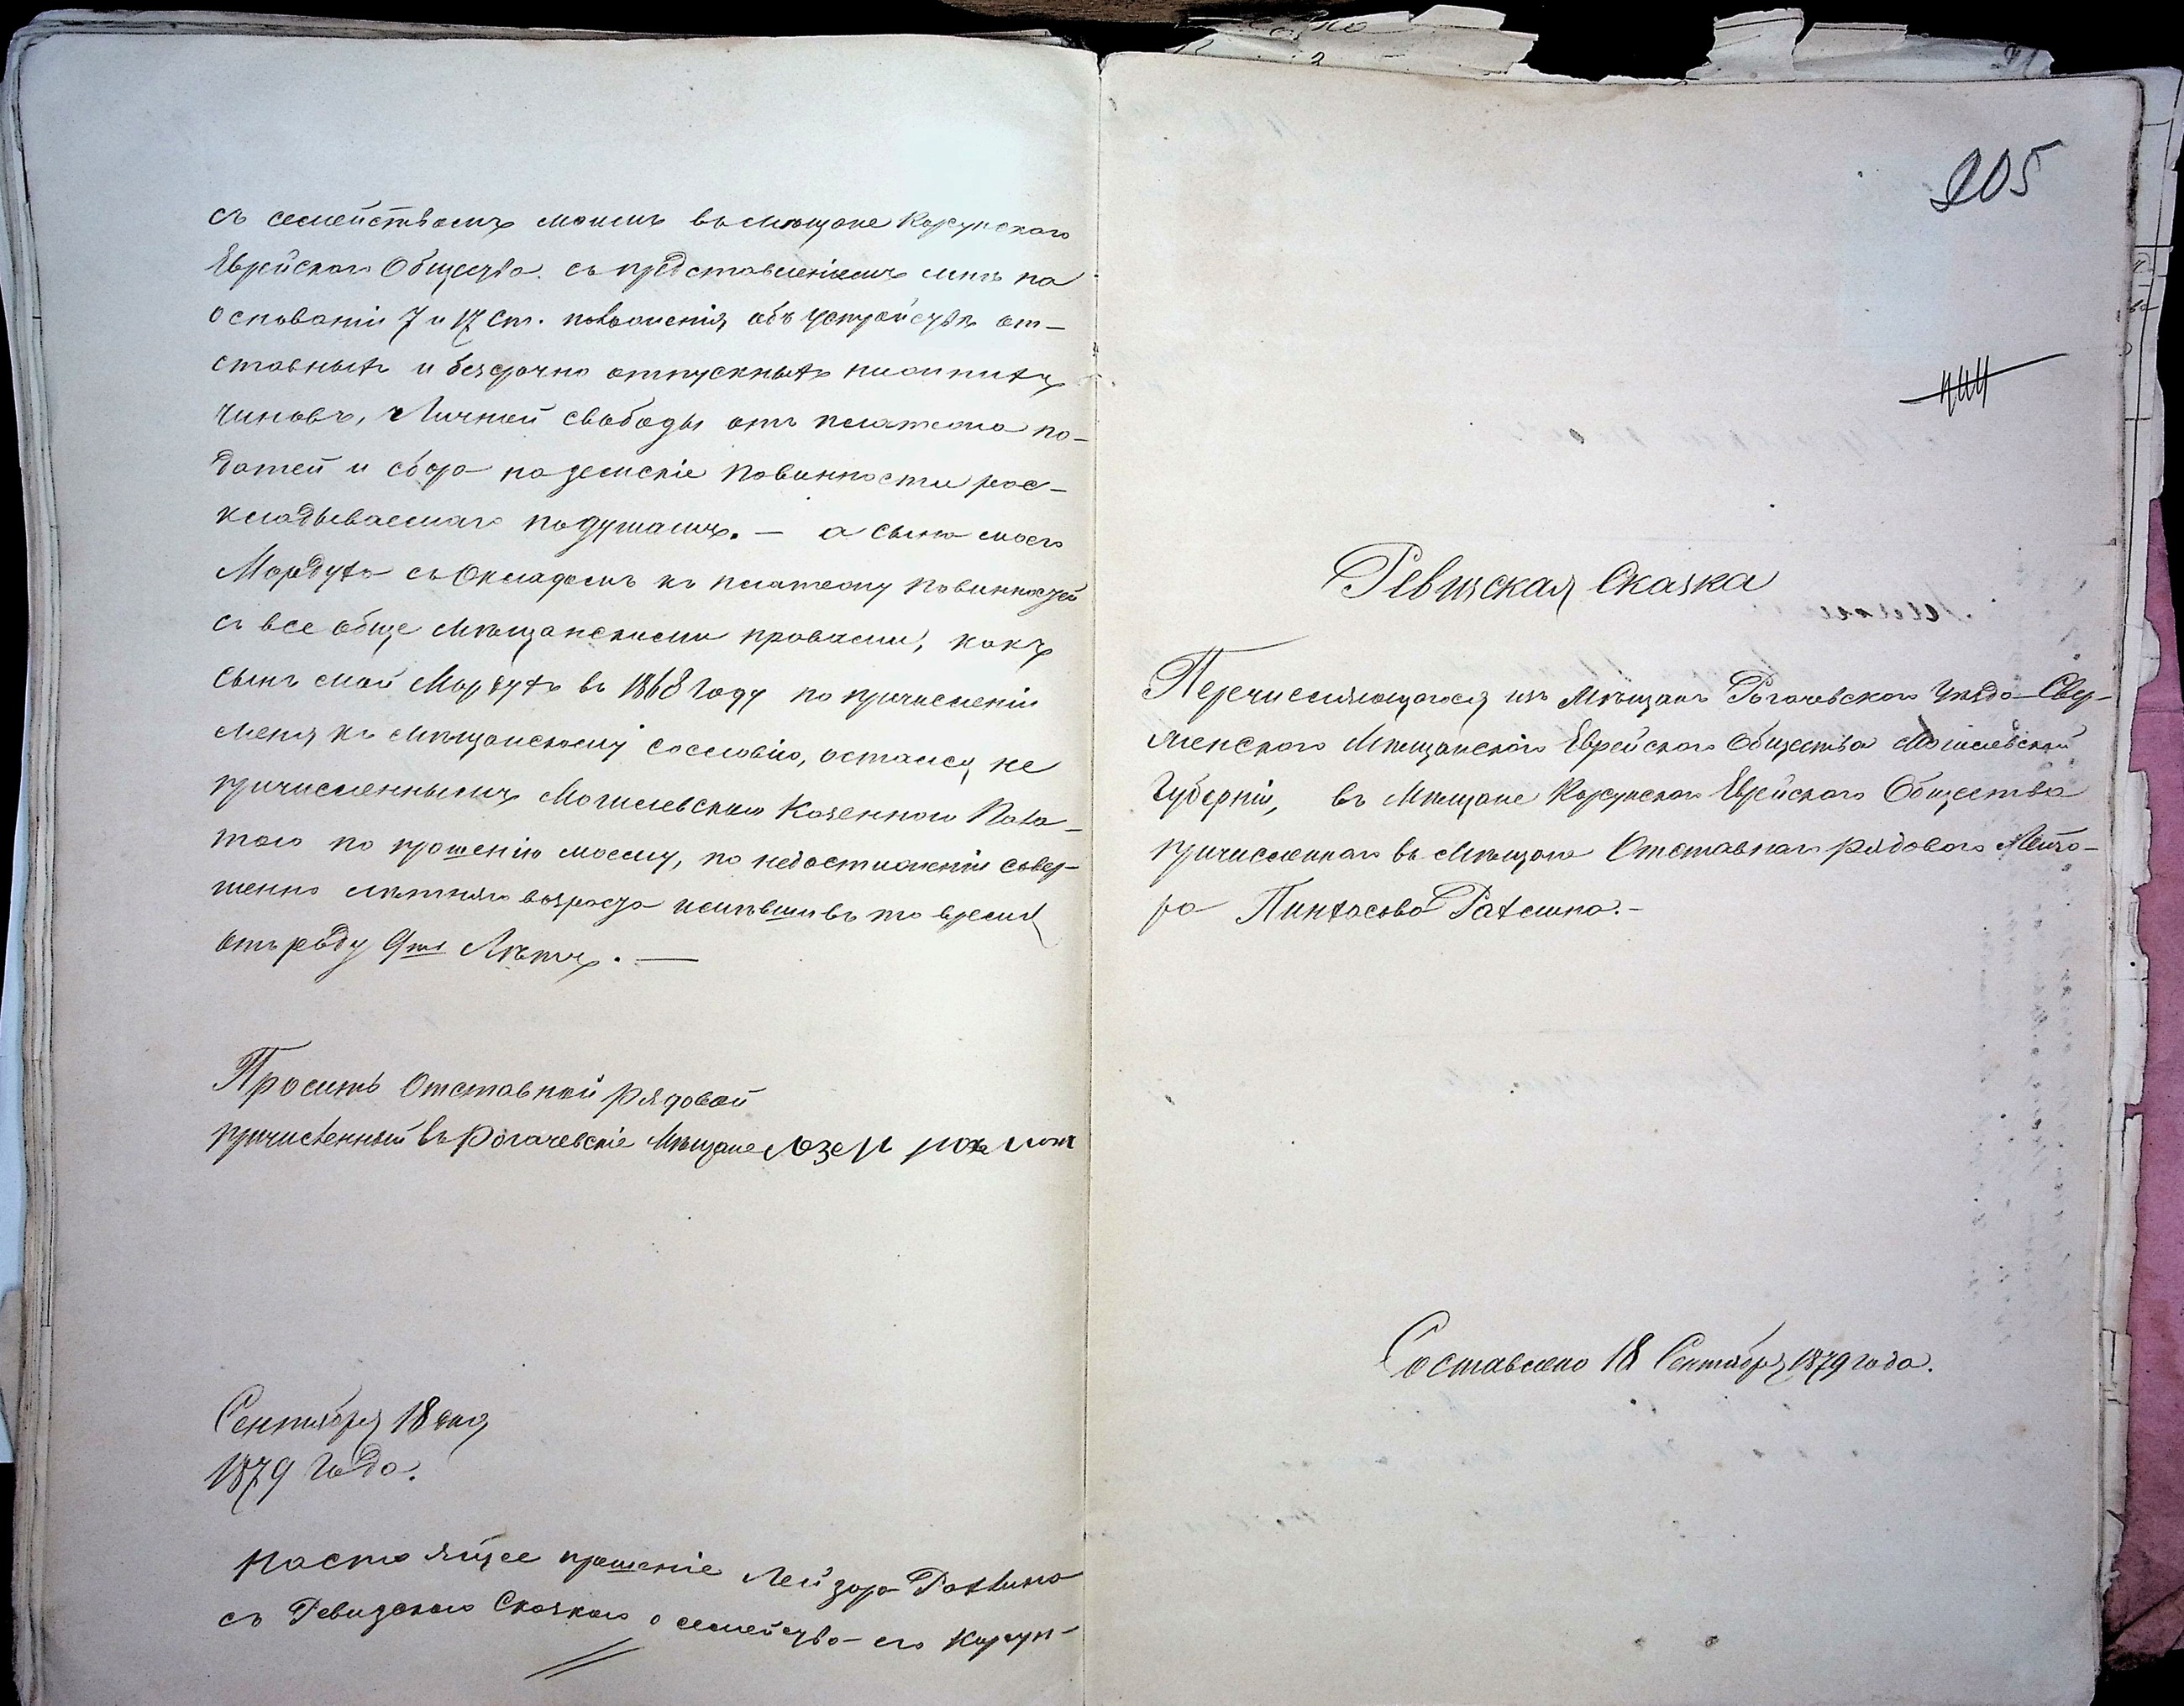 съ семействомъ моимъ въ Мѣщане Корсунскаго
Еврейскаго Общества съ представленіемъ мнѣ на
основаніи 7 и 17 ст. положенія объ устройствѣ от-
ставныхъ и безсрочно отпускныхъ нижнихъ
Чиновъ, Личной свободы отъ платежа по-
датей и сбора на земскіе повинности рас-
кладываемаго по душамъ. — а сына моего
Мордуха съ Окладомъ къ платежу повинностей
съ все обще Мѣщанскими правами, какъ
сынъ мой Мордухъ въ 1868 году по причисленіи
меня къ Мѣщанскому сословію, остался не
причисленнымъ Могилевскою Казенною Пала-
тою по прошенію моему, по недостиженіи совер-
шенно лѣтняго возраста имѣвши въ то время
отъ роду 9ть Лѣтъ. —
Проситъ Отставной рядовой
причисленный въ Рогачевскіе Мѣщане
Сентября 18 дня
1879 Года.
Настоящее прошеніе Лейзора Рахлина
съ Ревизскою Сказкою о семейство его Корсун-
205
Ревизская Сказка
Перечисляющагося изъ Мѣщанъ Рогачевскаго уѣзда Свер-
женскаго Мѣщанскаго Еврейскаго Общества Могилевской
Губерніи, въ Мѣщане Корсунскаго Еврейскаго Общества
причисленнаго въ Мѣщане Отставнаго рядоваго Лейзо-
ра Пинхасова Рахлина.—
Составлено 18 Сентября 1879 года.